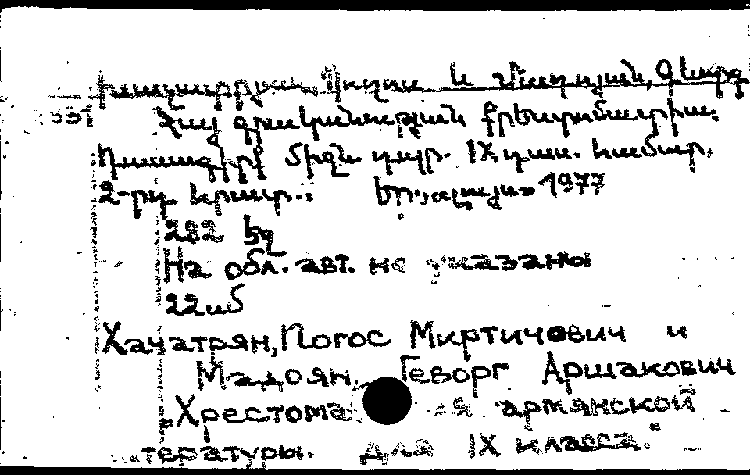 Խաչատրյան, Պողոս և Մադոյան, Գևորգ
Հայ գրականության քրեստոմատիա.
Դասագիրք միջն. դպր. IX դաս. համար.
2-րդ հրատ.: 1977
282 էջ
На обл. авт. не указаны
Хачатрян, Погос Миртичович и
Мадоян, Геворг Аршакович
Хрестома ия армянской
тературы. Для IX класса."